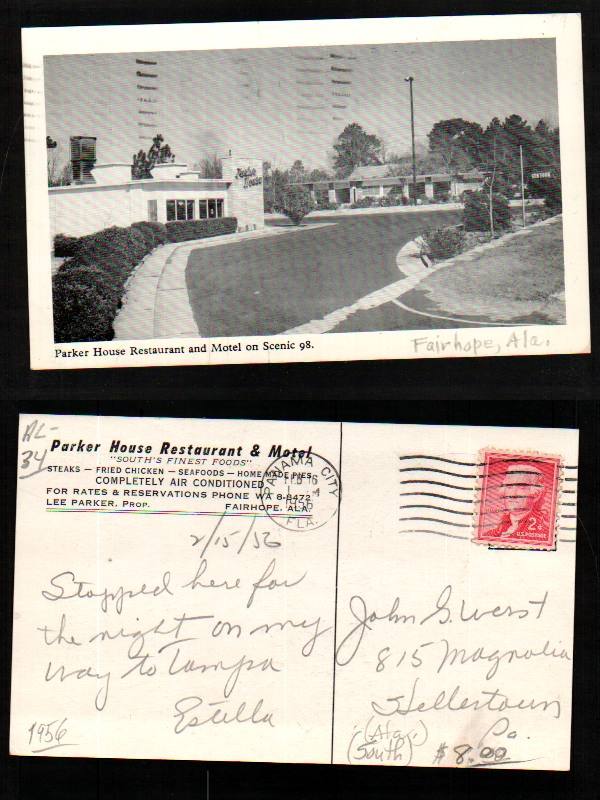 Parker House
Parker House Restaurant and Motel on Scenic 98.
Fairhope, Ala.
AL-
34
Parker House Restaurant & Motel
"SOUTH'S FINEST FOODS"
STEAKS — FRIED CHICKEN — SEAFOODS — HOME MADE PIES
COMPLETELY AIR CONDITIONED
FOR RATES & RESERVATIONS PHONE WA 8-8472
LEE PARKER, PROP. FAIRHOPE, ALA.
PANAMA CITY
FEB 16
1956
FLA.
2¢
U.S. POSTAGE
2/15/56
Stopped here for
the night on my
way to Tampa
Estella
1956
John G. Werst
815 Magnolia
Hellertown
Pa.
(Ala.)
(South) $8.00